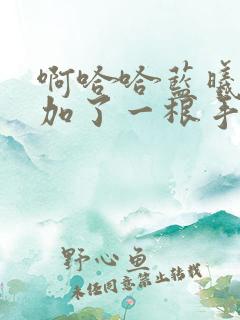 啊哈哈蓝曦
加了一根手
野心鱼
未经同意禁止转载